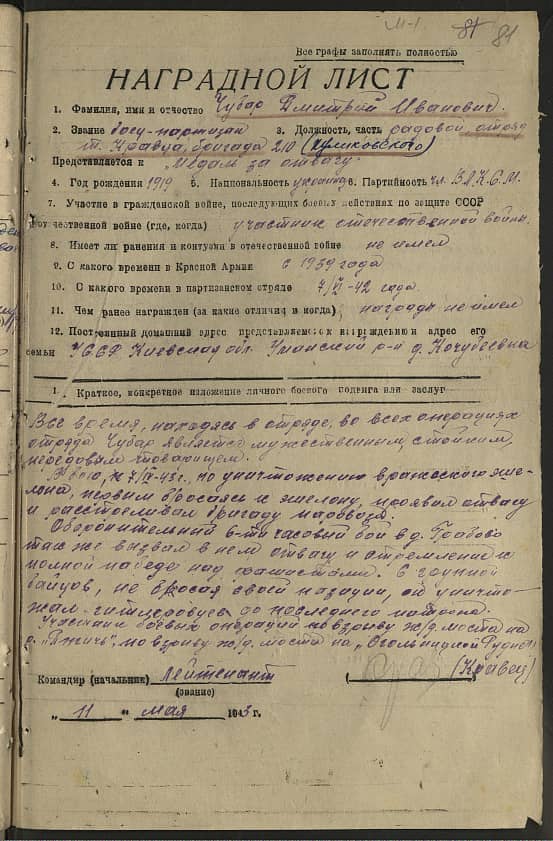 81 81
Все графы заполнять полностью
НАГРАДНОЙ ЛИСТ
1. Фамилия, имя и отчество Чубар Дмитрий Иванович.
2. Звание боец-партизан 3. Должность, часть рядовой отряд
т. Кравца, бригада 210 (Куликовского)
Представляется к Медаль за отвагу.
4. Год рождения 1919 5. Национальность украин 6. Партийность чл. ВЛКСМ.
7. Участие в гражданской войне, последующих боевых действиях по защите СССР
отечественной войне (где, когда) участник отечественной войны
8. Имеет ли ранения и контузии в отечественной войне не имел
9. С какого времени в Красной Армии с 1939 года
10. С какого времени в партизанском отряде 7/VI-42 года
11. Чем ранее награжден (за какие отличия и когда) награды не имел
12. Постоянный домашний адрес представляемого к награждению и адрес его
семьи УССР Киевская обл. Уманский р-н д. Кочубеевка
1 Краткое, конкретное изложение личного боевого подвига или заслуг
Все время, находясь в отряде, во всех операциях
отряда Чубар является мужественным, стойким,
передовым товарищем.
В бою, 7/IV-43г, по уничтожению вражеского эше-
лона, первым бросаясь к эшелону, проявил отвагу
и расстреливал бригаду паровоза.
Оборонительный 6-ти часовой бой в д. Грабово
так же вызвал в нем отвагу и стремление к
полной победе над фашистами. С группой
бойцов, не бросая своей позиции, он уничто-
жал гитлеровцев до последнего патрона.
Участник боевых операций по взрыву ж/д. моста на
р. "Птичь", по взрыву ж/д. моста на
Командир (начальник) Лейтенант (Кравец)
(звание)
"11" мая 1943 г.